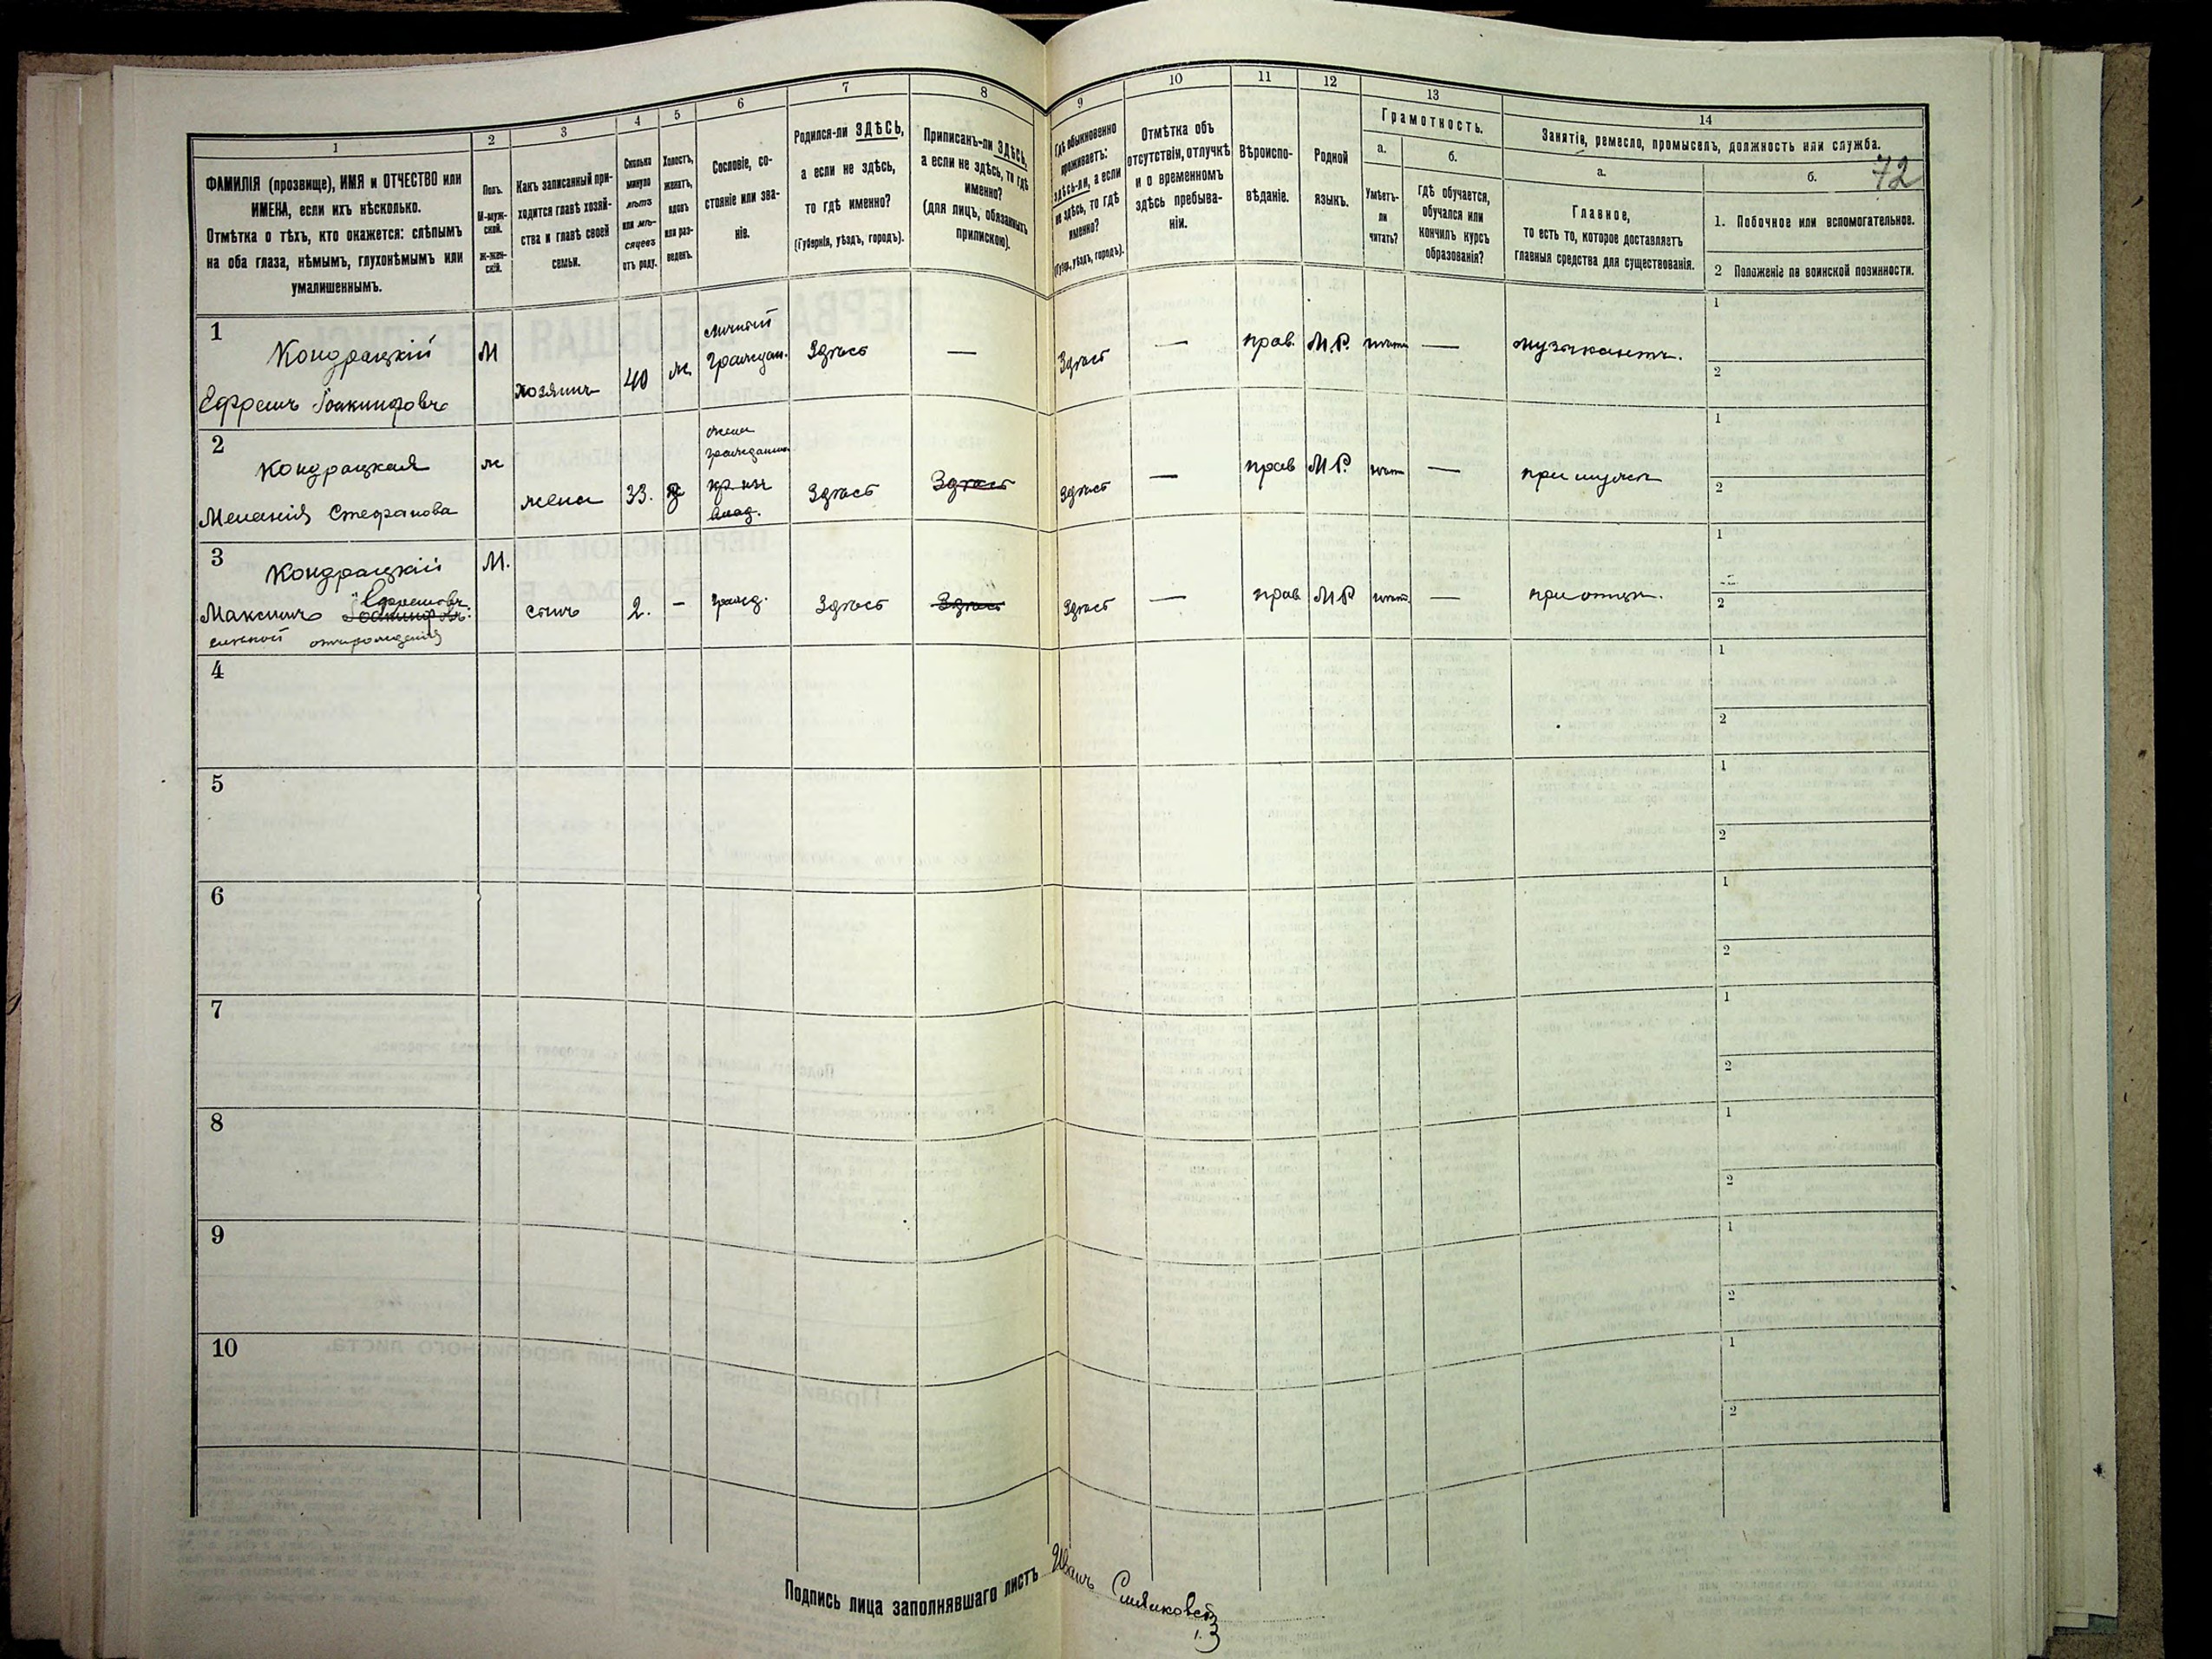 72
1
2
3
4
5
6
7
8
9
10
11
12
13
14
ФАМИЛІЯ (прозвище), ИМЯ и ОТЧЕСТВО или
ИМЕНА, если ихъ нѣсколько.
Отмѣтка о тѣхъ, кто окажется: слѣпымъ
на оба глаза, нѣмымъ, глухонѣмымъ или
умалишеннымъ.
Полъ.
М-муж-
ской.
Ж-жен-
скій.
Какъ записанный при-
ходится главѣ хозяй-
ства и главѣ своей
семьи.
Сколько
минуло
лѣтъ
или мѣ-
сяцевъ
отъ роду.
Холостъ,
женатъ,
вдовъ
или раз-
веденъ.
Сословіе, со-
стояніе или зва-
ніе.
Родился-ли ЗДѢСЬ,
а если не здѣсь,
то гдѣ именно?
(Губернія, уѣздъ, городъ).
Приписанъ-ли ЗДѢСЬ,
а если не здѣсь, то гдѣ
именно?
(для лицъ, обязанныхъ
припискою).
Гдѣ обыкновенно
проживаетъ:
здѣсь-ли, а если
не здѣсь, то гдѣ
именно?
(Губерн., уѣздъ, городъ).
Отмѣтка объ
отсутствіи, отлучкѣ
и о временномъ
здѣсь пребыва-
ніи.
Вѣроиспо-
вѣданіе.
Родной
языкъ.
Грамотность.
а.
Умѣетъ-
ли
читать?
б.
гдѣ обучается,
обучался или
кончилъ курсъ
образованія?
Занятіе, ремесло, промыселъ, должность или служба.
а.
Главное,
то есть то, которое доставляетъ
главныя средства для существованія.
б.
1. Побочное или вспомогательное.
2 Положеніе по воинской повинности.
1
Кондрацкій
Ефремъ Іоакимовъ
М
хозяинъ
40
ж
личный
граждан.
Здѣсь
—
Здѣсь
—
прав.
М.Р.
—
музыкантъ.
1
2
2
Кондрацкая
Меланія Стефанова
ж
жена
33.
жена
гражданина
кр. изъ
влад.
Здѣсь
Здѣсь
Здѣсь
—
прав
М.Р.
—
при мужѣ
1
2
3
Кондрацкій
Ефремовъ
Максимъ Іоакимовъ
слѣпой отъ рожденія
М.
сынъ
2.
-
гражд.
Здѣсь
Здѣсь
Здѣсь
—
прав
М.Р
—
при отцѣ.
1
2
4
1
2
5
1
2
6
1
2
7
1
2
8
1
2
9
1
2
10
1
2
Подпись лица заполнявшаго листъ Иванъ